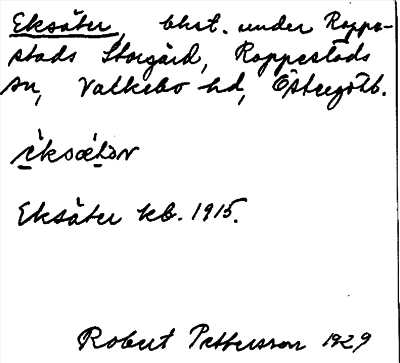 Eksäter, bhst. under Rappe-
stads Storgård, Rappestads
sn, Valkebo hd, Östergötl.
èksætər
Eksäter kb. 1915.
Robert Pettersson 1929